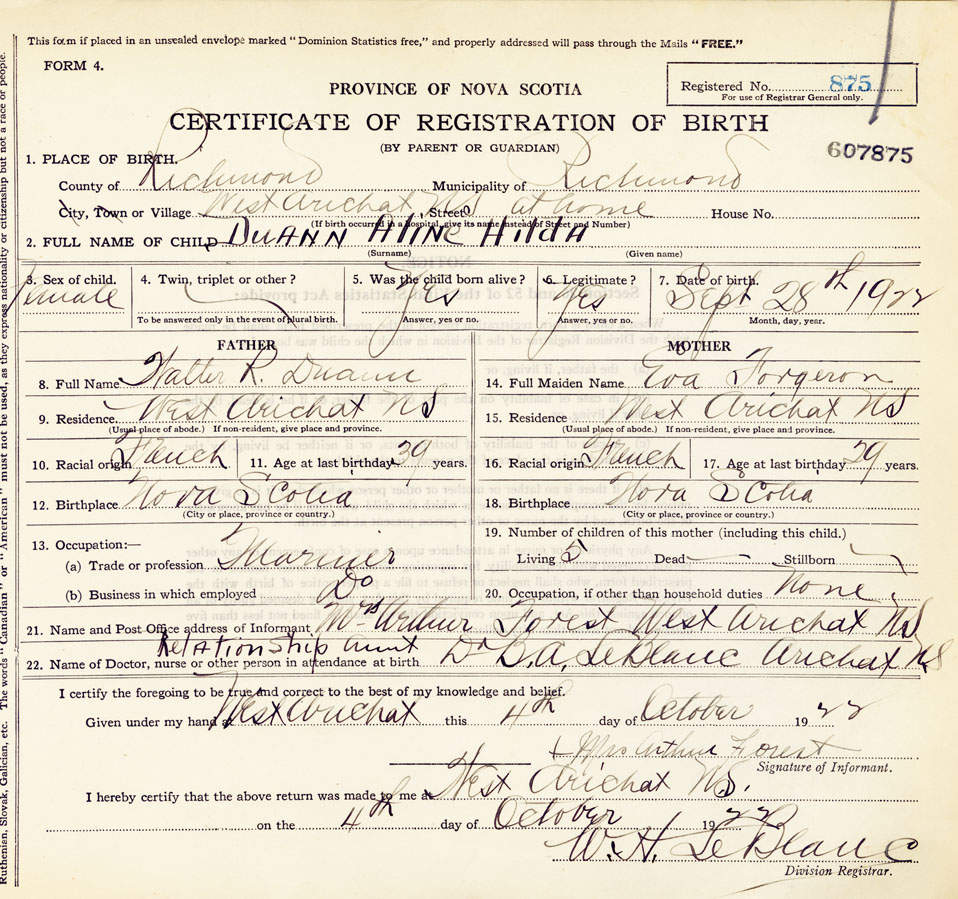 This form if placed in an unsealed envelope marked "Dominion Statistics free," and properly addressed will pass through the Mails "FREE."
FORM 4.
Registered No. 875
For use of Registrar General only.
PROVINCE OF NOVA SCOTIA
CERTIFICATE OF REGISTRATION OF BIRTH
(BY PARENT OR GUARDIAN)
607875
1. PLACE OF BIRTH.
County of Richmond Municipality of Richmond
City, Town or Village West Arichat NS Street at home House No.
(If birth occurred in a hospital, give its name instead of Street and Number)
2. FULL NAME OF CHILD DuAnn Aline Hilda
(Surname) (Given name)
3. Sex of child. 4. Twin, triplet or other? 5. Was the child born alive? 6. Legitimate? 7. Date of birth.
Female Yes Yes Sept 28th 1922
To be answered only in the event of plural birth. Answer, yes or no. Answer, yes or no. Month, day, year.
FATHER MOTHER
8. Full Name Walter R. Duann 14. Full Maiden Name Eva Forgeron
9. Residence West Arichat NS 15. Residence West Arichat NS
(Usual place of abode.) If non-resident, give place and province. (Usual place of abode.) If non-resident, give place and province.
10. Racial origin French 11. Age at last birthday 39 years. 16. Racial origin French 17. Age at last birthday 29 years.
12. Birthplace Nova Scotia 18. Birthplace Nova Scotia
(City or place, province or country.) (City or place, province or country.)
13. Occupation:— 19. Number of children of this mother (including this child.)
(a) Trade or profession Mariner Living 5 Dead — Stillborn
(b) Business in which employed Do 20. Occupation, if other than household duties None.
21. Name and Post Office address of Informant Mrs Arthur Forest West Arichat NS
Relationship Aunt
22. Name of Doctor, nurse or other person in attendance at birth Dr B.A. LeBlanc Arichat NS
I certify the foregoing to be true and correct to the best of my knowledge and belief.
Given under my hand at West Arichat this 4th day of October 1922
+ Mrs Arthur Forest
Signature of Informant.
I hereby certify that the above return was made to me at West Arichat NS.
on the 4th day of October 1922
W. H. LeBlanc
Division Registrar.
Ruthenian, Slovak, Galician, etc. The words "Canadian" or "American" must not be used, as they express nationality or citizenship but not a race or people.